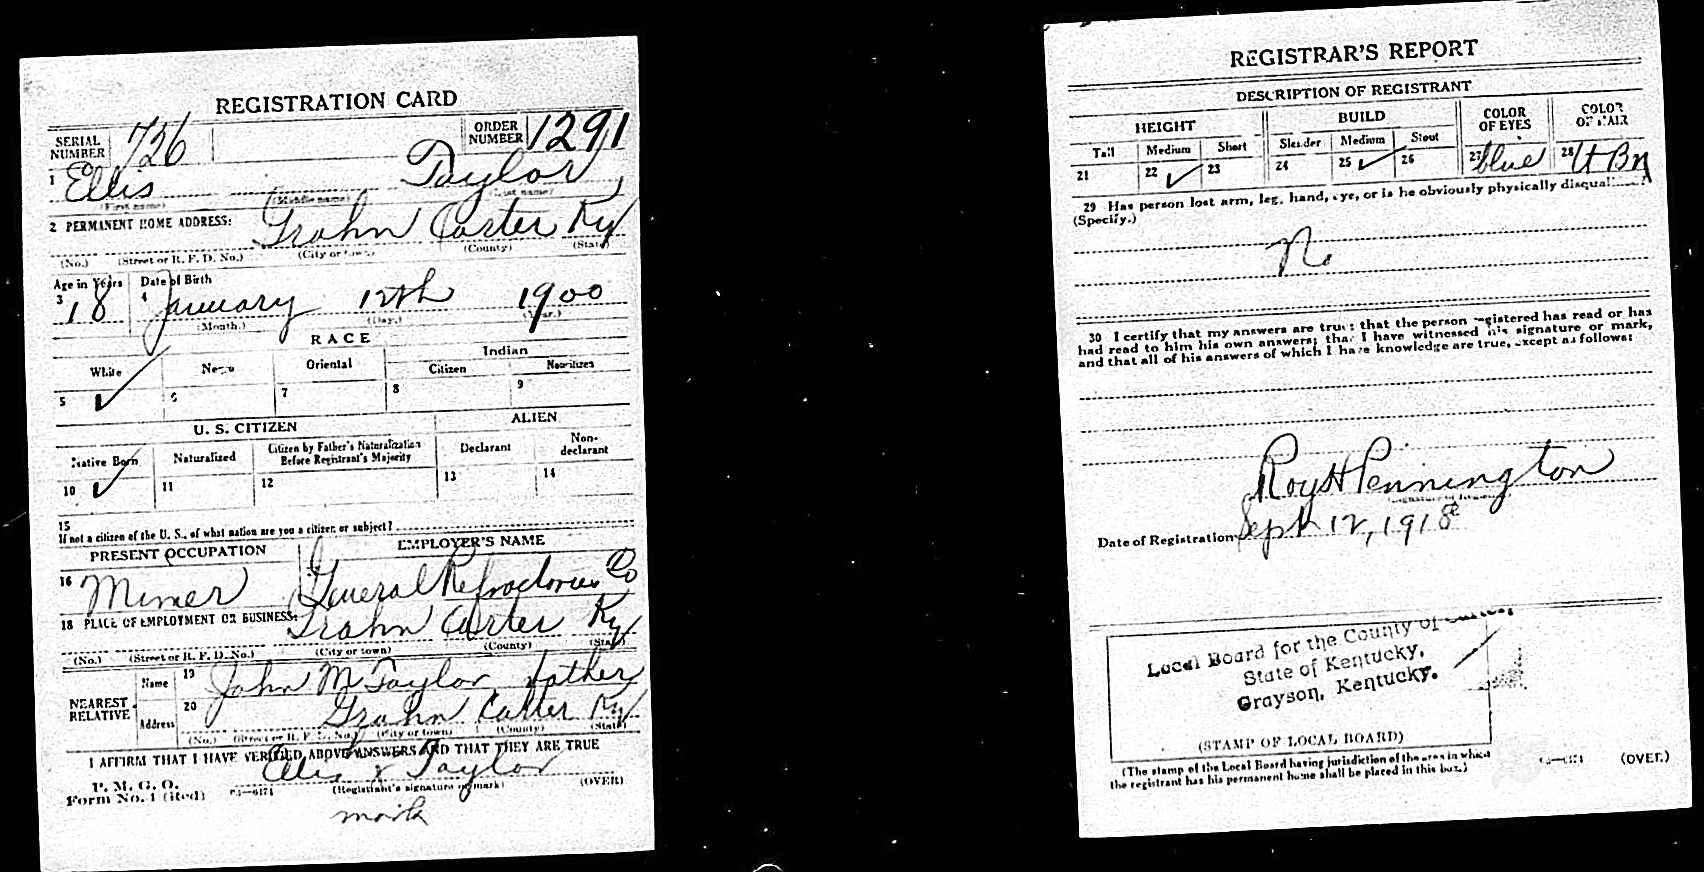 REGISTRATION CARD
SERIAL NUMBER 726 ORDER NUMBER 1291
1 Ellis Taylor
(First name) (Middle name) (Last name)
2 PERMANENT HOME ADDRESS: Grahn Carter Ky
(No.) (Street or R. F. D. No.) (City or town) (County) (State)
Age in Years Date of Birth
3 18 4 January 12th 1900
(Month.) (Day.) (Year.)
RACE
White Negro Oriental Indian
Citizen Noncitizen
5 ✓ 6 7 8 9
U. S. CITIZEN ALIEN
Native Born Naturalized Citizen by Father's Naturalization Before Registrant's Majority Declarant Non-declarant
10 ✓ 11 12 13 14
15
If not a citizen of the U. S., of what nation are you a citizen or subject?
PRESENT OCCUPATION EMPLOYER'S NAME
16 Miner General Refractories Co
18 PLACE OF EMPLOYMENT OR BUSINESS: Grahn Carter Ky
(No.) (Street or R. F. D. No.) (City or town) (County) (State)
NEAREST RELATIVE Name 19 John M Taylor father
Address 20 Grahn Carter Ky
(No.) (Street or R. F. D. No.) (City or town) (County) (State)
I AFFIRM THAT I HAVE VERIFIED ABOVE ANSWERS AND THAT THEY ARE TRUE
P. M. G. O.
Form No. 1 (Red) Ellis x Taylor
(Registrant's signature or mark) (OVER)
mark
REGISTRAR'S REPORT
DESCRIPTION OF REGISTRANT
HEIGHT BUILD COLOR OF EYES COLOR OF HAIR
Tall Medium Short Slender Medium Stout
21 22 ✓ 23 24 25 ✓ 26 27 blue 28 Lt Bn
29 Has person lost arm, leg, hand, eye, or is he obviously physically disqualified?
(Specify.)
No
30 I certify that my answers are true; that the person registered has read or has
had read to him his own answers; that I have witnessed his signature or mark,
and that all of his answers of which I have knowledge are true, except as follows:
Roy H Pennington
Date of Registration Sept 12, 1918
Local Board for the County of Carter,
State of Kentucky,
Grayson, Kentucky.
(STAMP OF LOCAL BOARD)
(The stamp of the Local Board having jurisdiction of the area in which
the registrant has his permanent home shall be placed in this box.)
(OVER)